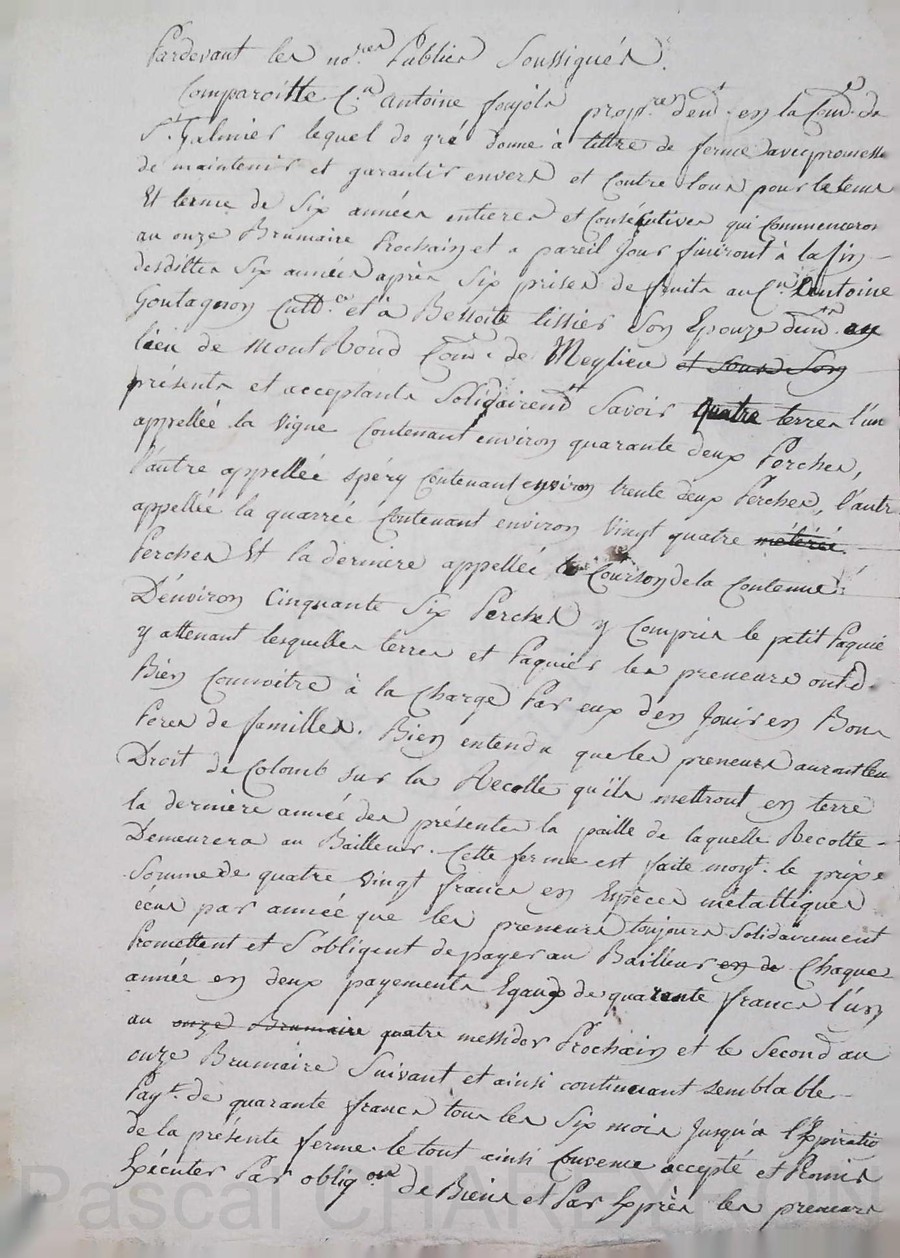 Pardevant les no.res Publics Soussignés.
Comparoitte C.n antoine foujols propr.re dem.t en la Com.e de
S.t Galmier lequel de gré donne à tittre de ferme avec promesse
de maintenir et garantir envers et Contre tous pour le tems
Et terme de Six années entieres et Consécutives qui Commenceron
au onze Brumaire Prochain et a pareil Jour finiront à la fin
desdittes Six années après Six prises de fruits au C.n antoine
Goutagnon Cult.r et à Benoite tissier Son Epouze dem.t au
lieu de Montrond Com.e de Meylieu et Sous de Son
présents et acceptants Solidairem.t Savoir quatre terres l'un
appellée la vigne Contenant environ quarante deux Perches,
l'autre appellée spéry Contenant environ trente deux Perches, l'autr
appellée la quarrée Contenant environ vingt quatre métérée
Perches Et la derniere appellée le Courson de la Contenue
D'énviron Cinquante Six Perches y Compris le petit Paquié
y attenant lesquelles terres et Paquiers les preneurs ont d.
Bien Connoitre à la Charge Par eux d'en Jouir en Bons
Peres de familles. Bien entendu que les preneurs auront leu
Droit de Colomb sur la Recolte qu'ils mettront en terre
la dernière année des présentes la paille de laquelle Recolte
Demeurera au Bailleur. Cette ferme est faite moy.t le prix e
Somme de quatre vingt francs en Espèces métalliques
écus par année que les preneurs toujours Solidairement
Promettent et S'obligent de payer au Bailleur en de Chaque
année en deux payements Egaux de quarente francs l'un
au onze Brumaire quatre messidor Prochain et le Second au
onze Brumaire Suivant et ainsi continuant semblable
Pay.t de quarante francs tous les Six mois Jusqu'à l'Expiratio
de la présente ferme le tout ainsi Convenu accepté et Promis
Exécuter Par oblig.on de Biens et Par Exprès les preneurs
Pascal CHAREYRON